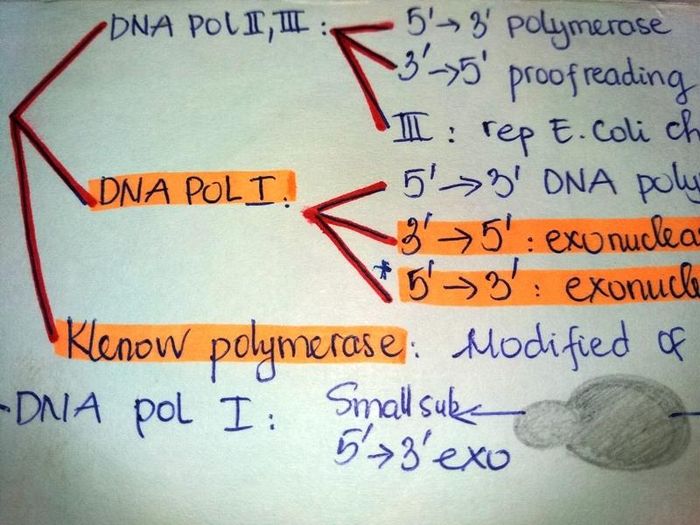 DNA Pol II, III : 5' → 3' polymerase
3' → 5' proofreading
III : rep E. Coli ch
DNA POL I : 5' → 3' DNA poly
3' → 5' : exonuclea
* 5' → 3' : exonucle
Klenow polymerase : Modified of
-DNA pol I : Small sub
5' → 3' exo